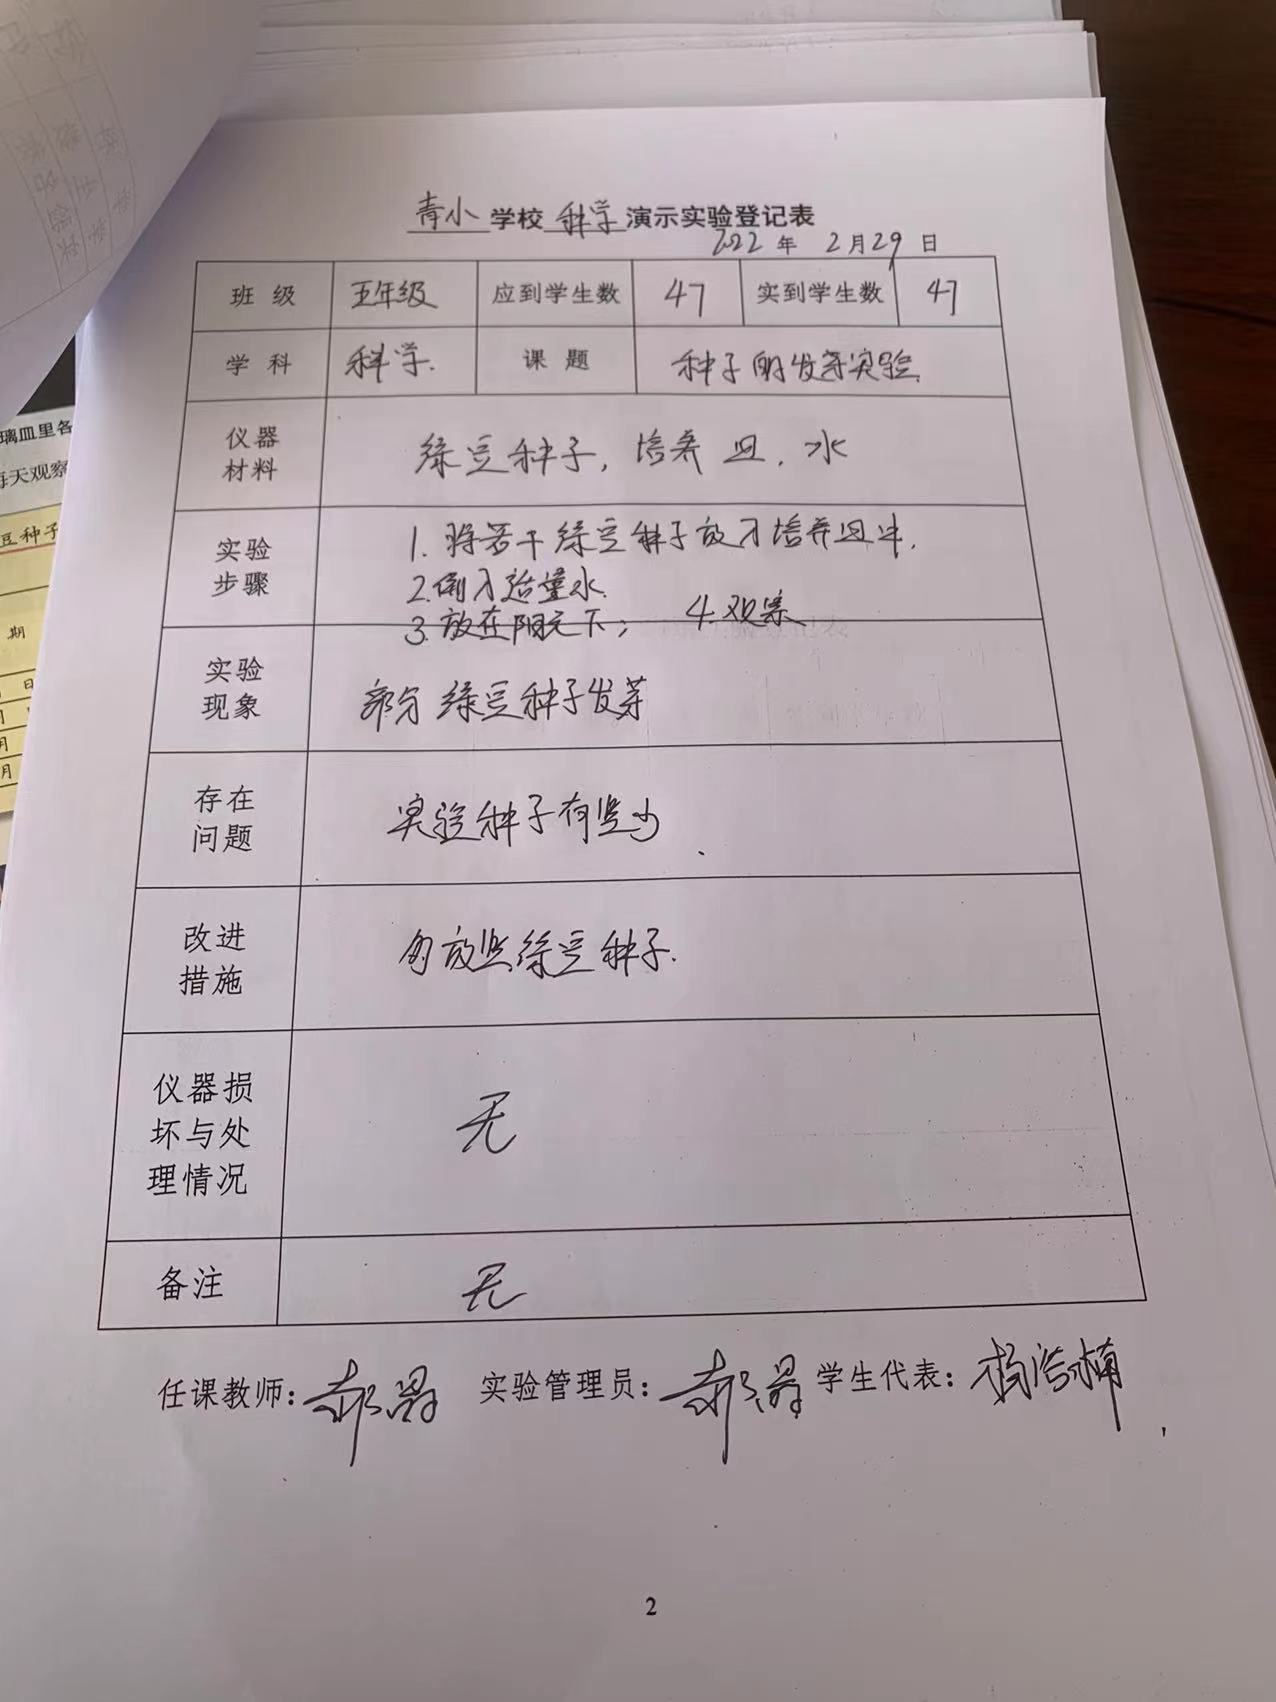 青小 学校 科学 演示实验登记表
2022 年 2 月 29 日
班级 五年级 应到学生数 47 实到学生数 47
学科 科学. 课题 种子的发芽实验
仪器
材料
绿豆种子, 培养皿, 水
实验
步骤
1. 将若干绿豆种子放入培养皿中.
2. 倒入适量水.
3. 放在阳光下; 4. 观察
实验
现象
部分绿豆种子发芽
存在
问题
实验种子有些少
改进
措施
放些绿豆种子.
仪器损
坏与处
理情况
无
备注
无
任课教师: 实验管理员: 学生代表: 杨浩楠
2
璃皿里各
每天观察
豆种子
期
日
月
月
月